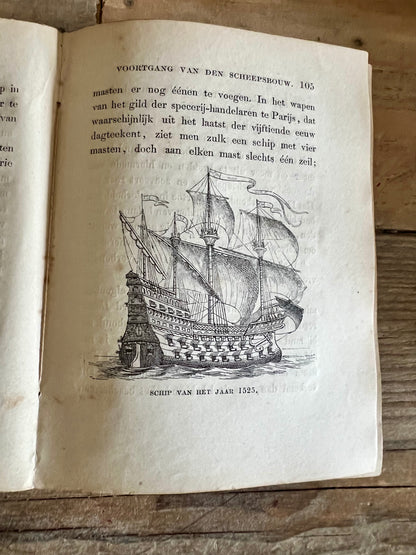 p in
r te
s
ten
ric
VOORTGANG VAN DEN SCHEEPSBOUW. 105
masten er nog éénen te voegen. In het wapen
van het gild der specerij-handelaren te Parijs, dat
waarschijnlijk uit het laatst der vijftiende eeuw
dagteekent, ziet men zulk een schip met vier
masten, doch aan elken mast slechts één zeil;
SCHIP VAN HET JAAR 1525.